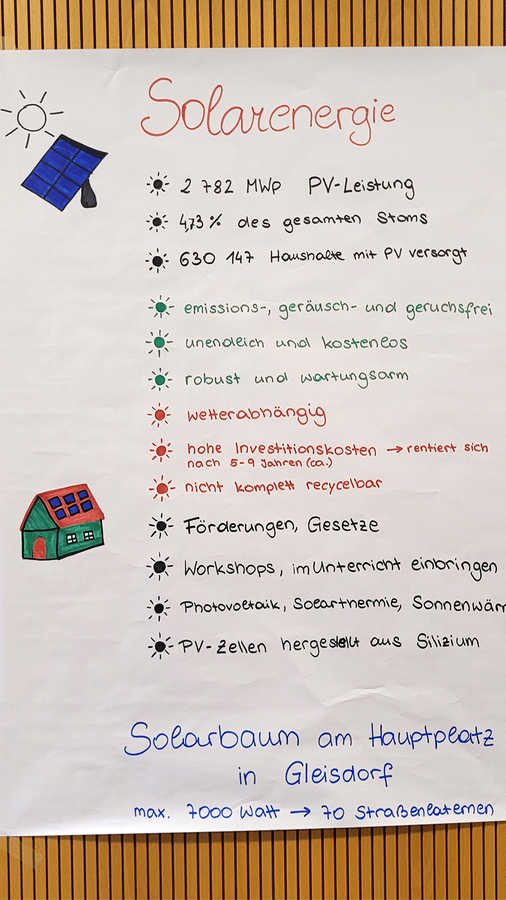 Solarenergie
2 782 MWp PV-Leistung
4,73 % des gesamten Stoms
630 147 Haushalte mit PV versorgt
emissions-, geräusch- und geruchsfrei
unendlich und kostenlos
robust und wartungsarm
wetterabhängig
hohe Investitionskosten → rentiert sich
nach 5-9 Jahren (ca.)
nicht komplett recycelbar
Förderungen, Gesetze
Workshops, im Unterricht einbringen
Photovoltaik, Solarthermie, Sonnenwärm
PV-Zellen hergestellt aus Silizium
Solarbaum am Hauptplatz
in Gleisdorf
max. 7000 Watt → 70 Straßenlaternen